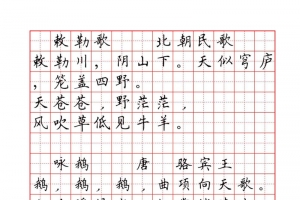 敕勒歌 北朝民歌
敕勒川，阴山下。天似穹庐
，笼盖四野。
天苍苍，野茫茫，
风吹草低见牛羊。
咏鹅 唐 骆宾王
鹅，鹅，鹅，曲项向天歌。